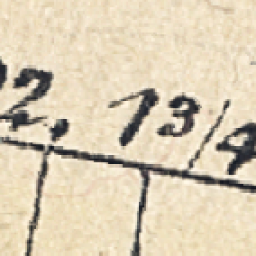 2, 1 3/4